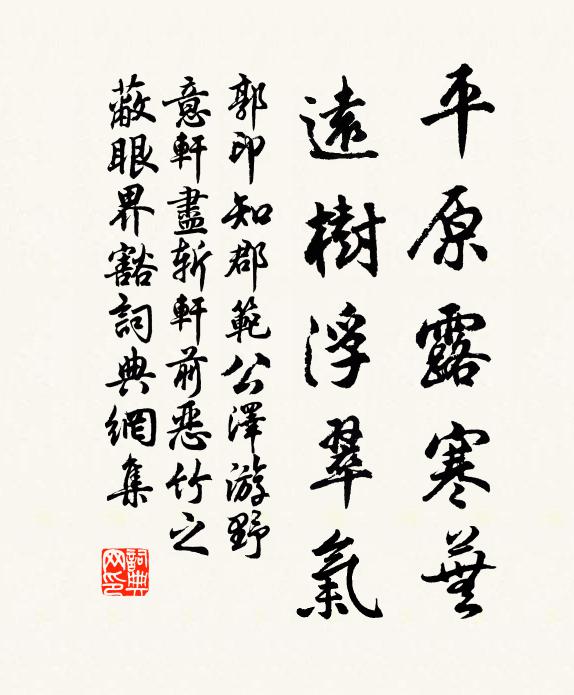 平原露寒蕪
遠樹浮翠氣
郭印知郡範公澤游野
意軒盡斬軒前惡竹之
蔽眼界豁詞典網集
詞典网印